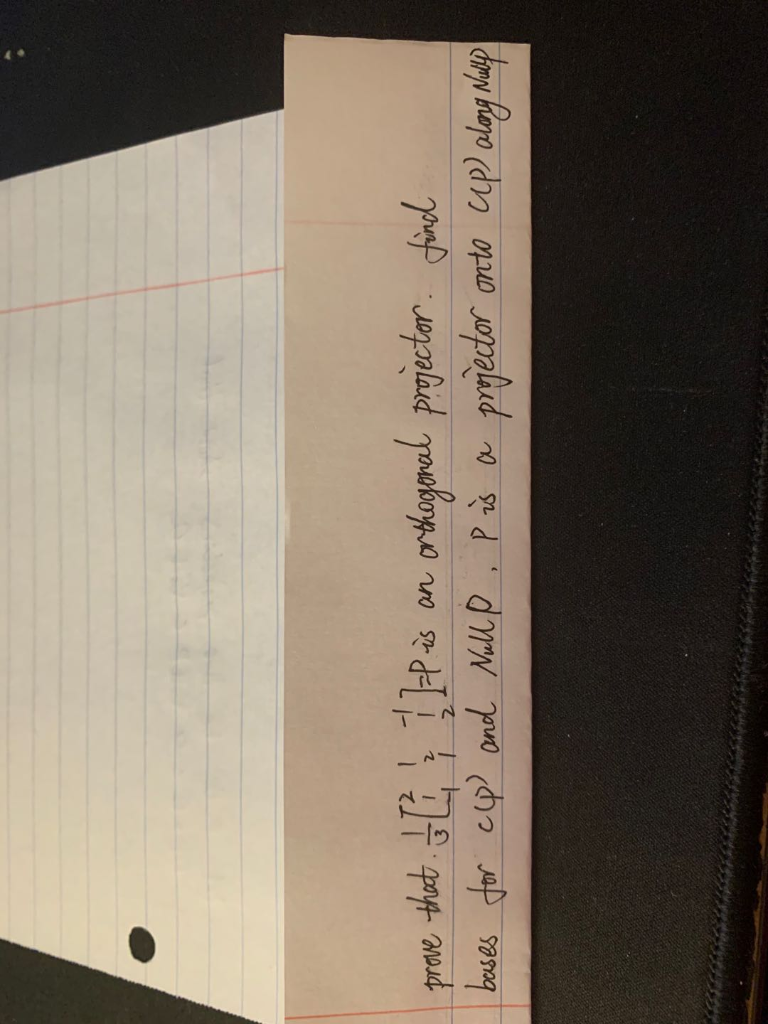 prove that. 1/3 [2 1 -1; 1 2 1; -1 1 2] = P is an orthogonal projector. find
bases for C(P) and Null P. P is a projector onto C(P) along Null P